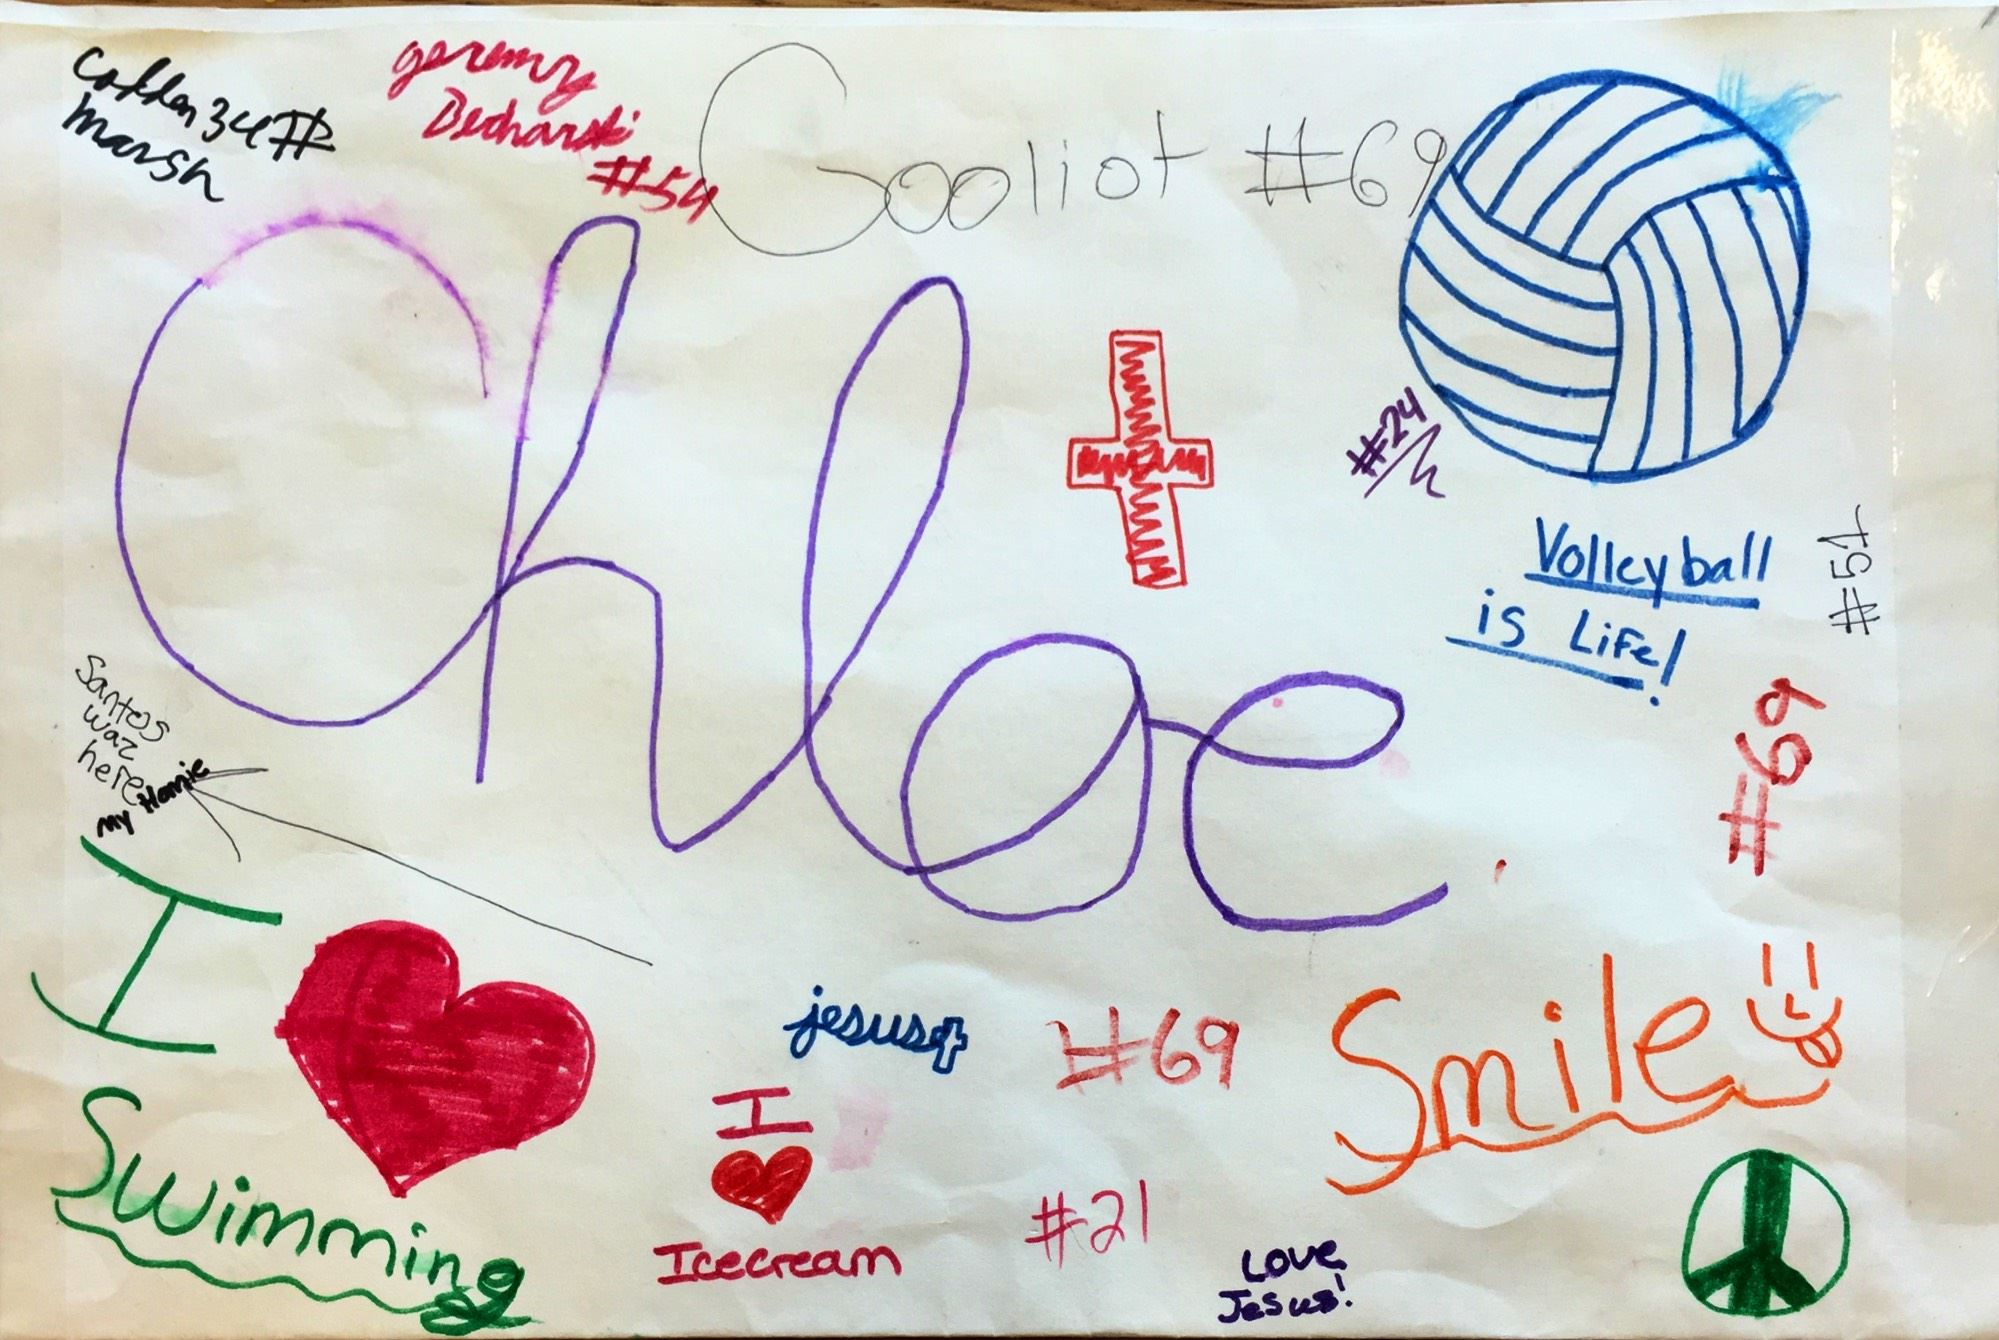 34#
marsh
geremy
#54
Gooliot #69
Chloe
#24
Volleyball
is Life!
#51
#69
Santos
waz
here
my Homie
I
Swimming
jesus
#69
Smile
I
Icecream
#21
Love
Jesus!